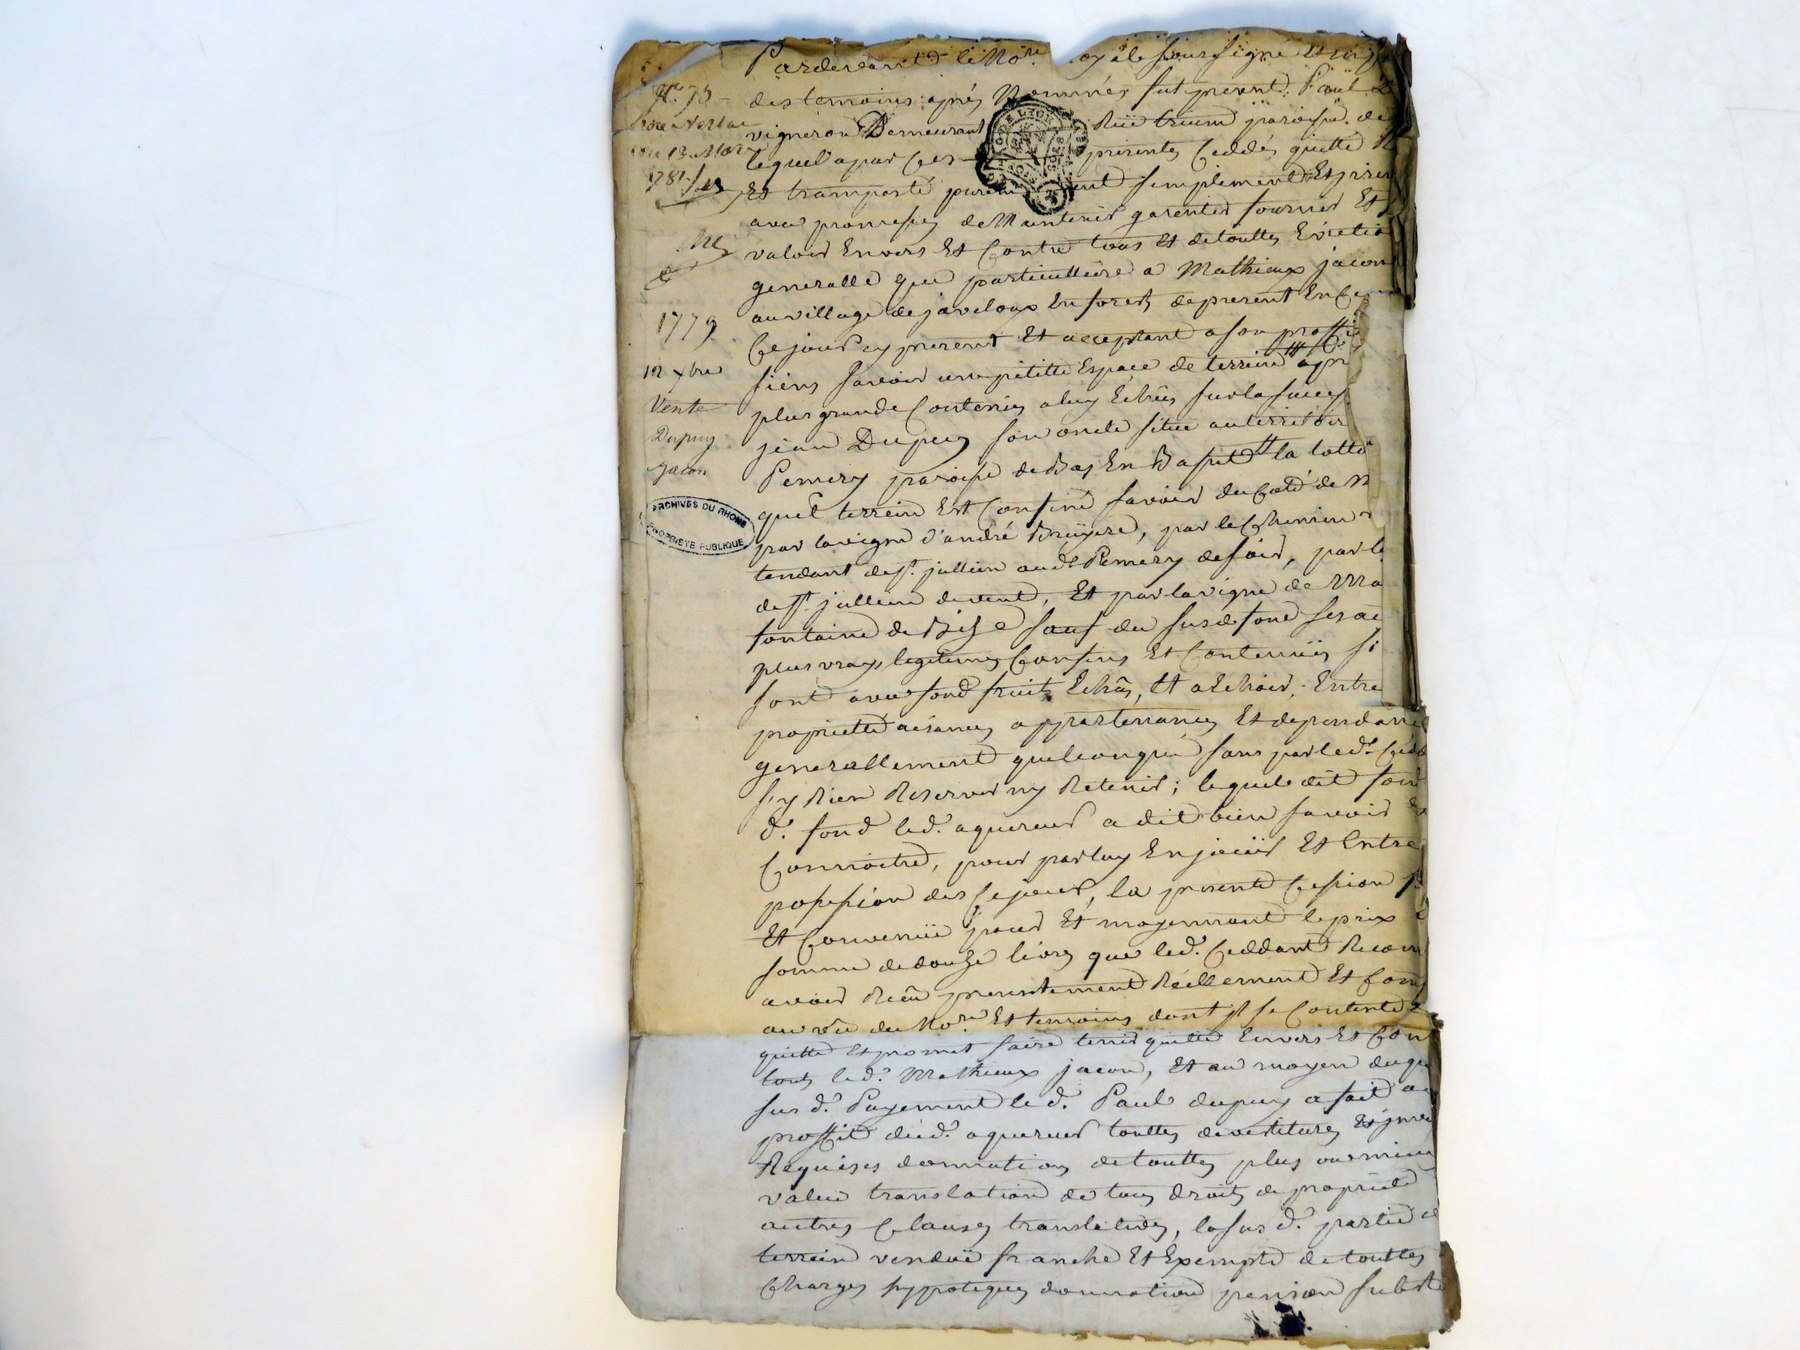 Pardevant le No.re Royal Soussigné Et en p
des temoins après Nommés fut present Paul D
vigneron Demeurant paroisse de
lequel a par ces presentes Ceddés quitte R
Et transporté purement Et simplement Et
avec promesses de Maintenir garentir fournir Et
valoir Envers Et Contre tous Et de touttes Evictio
generalle que particulliere a Mathieux jacon
au village de javeloux En forets de present En Ce
Ce jour cy present Et acceptant a son proffit
siens savoir une petitte Espace de terrein a p
plus grande Contenüe a luy Echûe sur la succes
jean Dupuy son oncle situé au territoir
Pemery paroisse de Bas En Basset la totte
quel terrein Est Confiné savoir du Coté de M
par la vigne d'andré Bruÿere, par le Chemin
tendant de st. jullien aud. Pemery de soir, par le
de st. jullien de vent, Et par la vigne de Ma
fontaine de Bize sauf du susd. fond ses au
plus vrays legitimes Confins Et Contenües si
sont avec fond fruits Echûs, Et a Echoir, Entré
proprietté aisances appartenances Et dependance
generallement quelconque sans par led. Cédd
s'y Rien Reserver ny Retenir; lequel dit fond
d. fond led. aquereur a dit bien savoir
Connoitre, pour par luy En jouïr Et Entre
possession des Ce jour, la presente Cession f
Et Convenüe pour Et moyennant le prix
somme de douze livres que led. Ceddant Recon
avoir Reçû presentement Réellement Et Com
au vû du No.re Et temoins dont jl se Contente
quitte Et promet faire tenir quitte Envers Et Cont
tous led. Mathieux jacon, Et au moyen duqu
sus d. Payement le d. Paul dupuy a fait au
proffit dud. aquereur touttes devetitures Et jnve
Requises donnation de touttes plus ou mieux
value translation de tous droits de proprieté
autres Clauses translatives, la sus d. partie d
terrein vendüe franche Et Exempte de touttes
Charges hypoteques donnation pension substi
N.° 75
du 13 Mars
1781
1779
12 xbre
Vente
Dupuy
Jacon
ARCHIVES DU RHONE
PROPRIETE PUBLIQUE